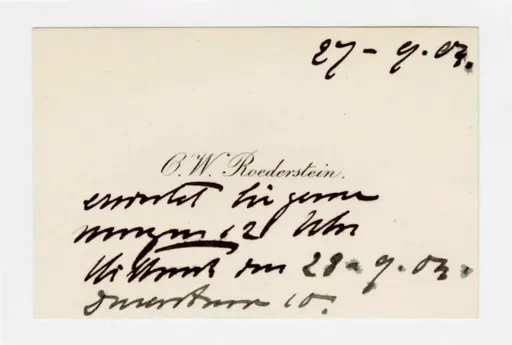 27 - 9. 03.
O. W. Roederstein.
erwartet Sie gerne
morgen 12 Uhr
den 28. 9. 03.
10.